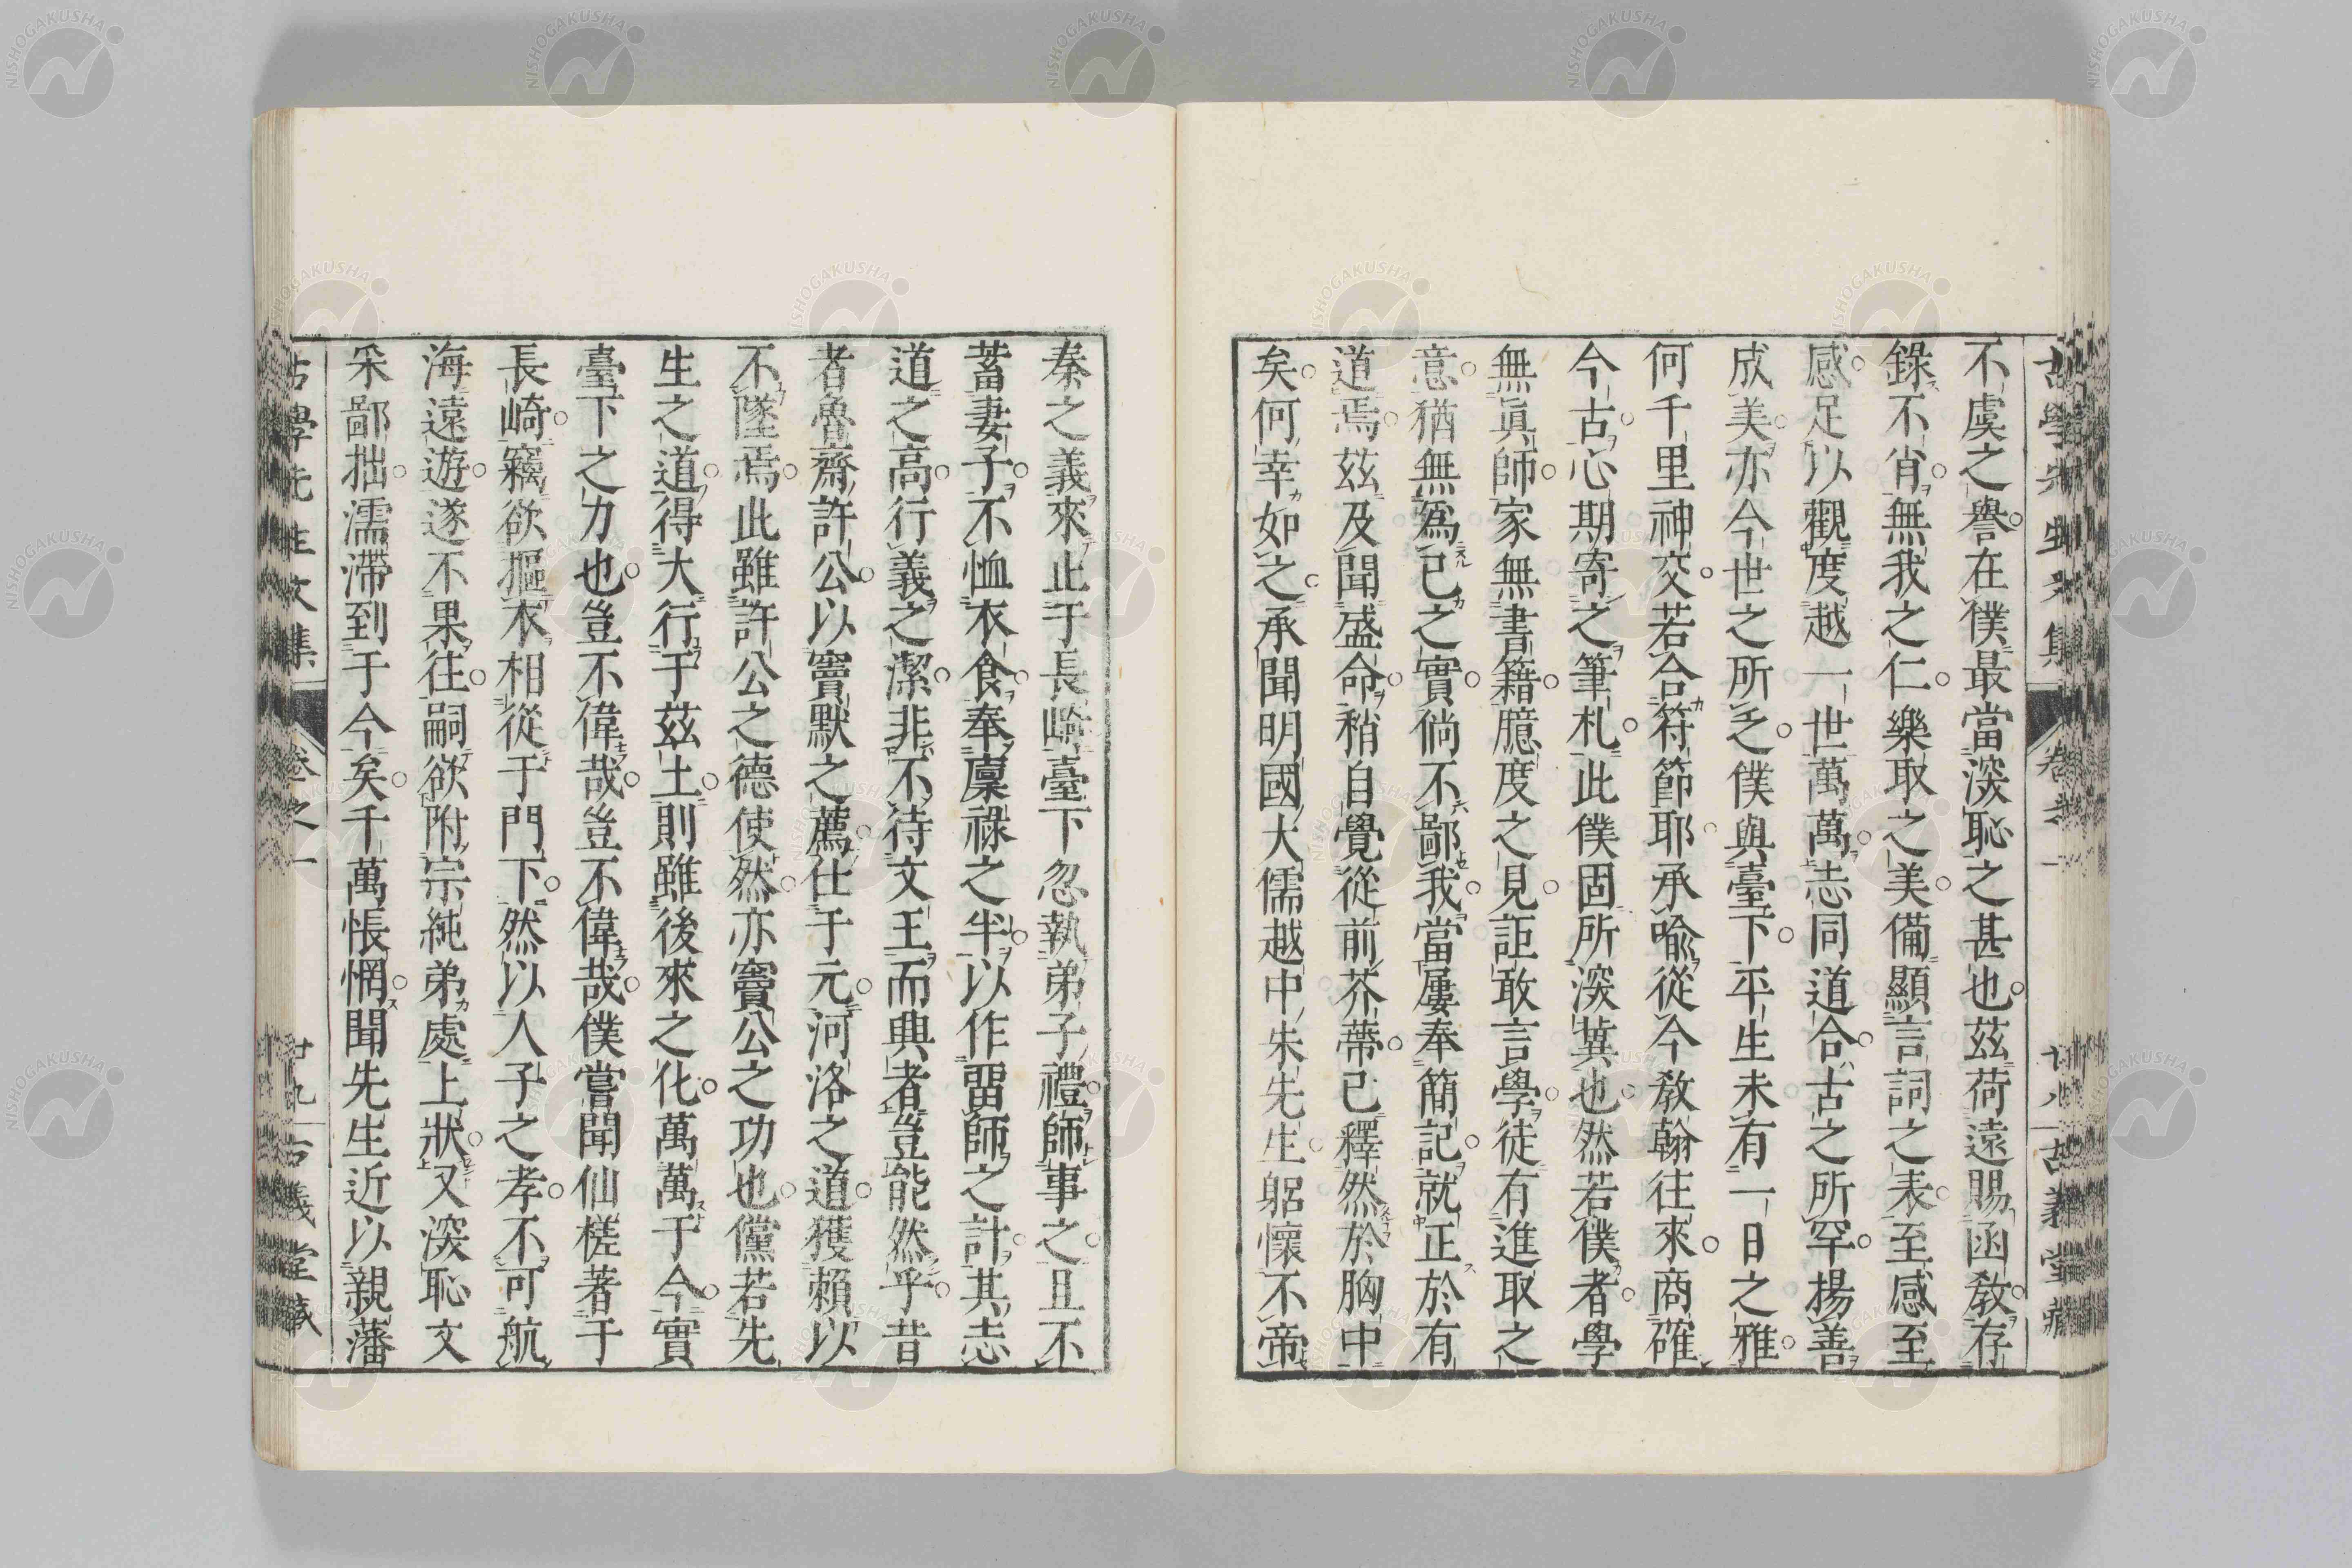 古學先生文集 卷之一 廿八 古義堂藏
不虞之譽在僕最當深恥之甚也茲荷遠賜函教存
錄不肖無我之仁樂取之美備顯言詞之表至感至
感足以觀度越一世萬萬志同道合古之所罕揚善
成美亦今世之所乏僕與臺下平生未有一日之雅
何千里神交若合符節耶承喻從今教翰往來商確
今古心期寄之筆札此僕固所深冀也然若僕者學
無眞師家無書籍臆度之見詎敢言學徒有進取之
意猶無爲己之實倘不鄙我當屢奉簡記就正於有
道焉茲及聞盛命稍自覺從前芥蔕已釋然於胸中
矣何幸如之承聞明國大儒越中朱先生躬懷不帝
秦之義來止于長崎臺下忽執弟子禮師事之且不
蓄妻子不恤衣食奉廩祿之半以作留師之計其志
道之高行義之潔非不待文王而興者豈能然乎昔
者魯齋許公以竇默之薦仕于元河洛之道獲賴以
不墜焉此雖許公之德使然亦竇公之功也儻若先
生之道得大行于茲土則雖後來之化萬萬于今實
臺下之力也豈不偉哉豈不偉哉僕嘗聞仙槎著于
長崎竊欲摳衣相從于門下然以人子之孝不可航
海遠遊遂不果往嗣欲附宗純弟處上狀又深恥文
采鄙拙濡滯到于今矣千萬悵惘聞先生近以親藩
古學先生文集 卷之一 廿九 古義堂藏
NISHOGAKUSHA